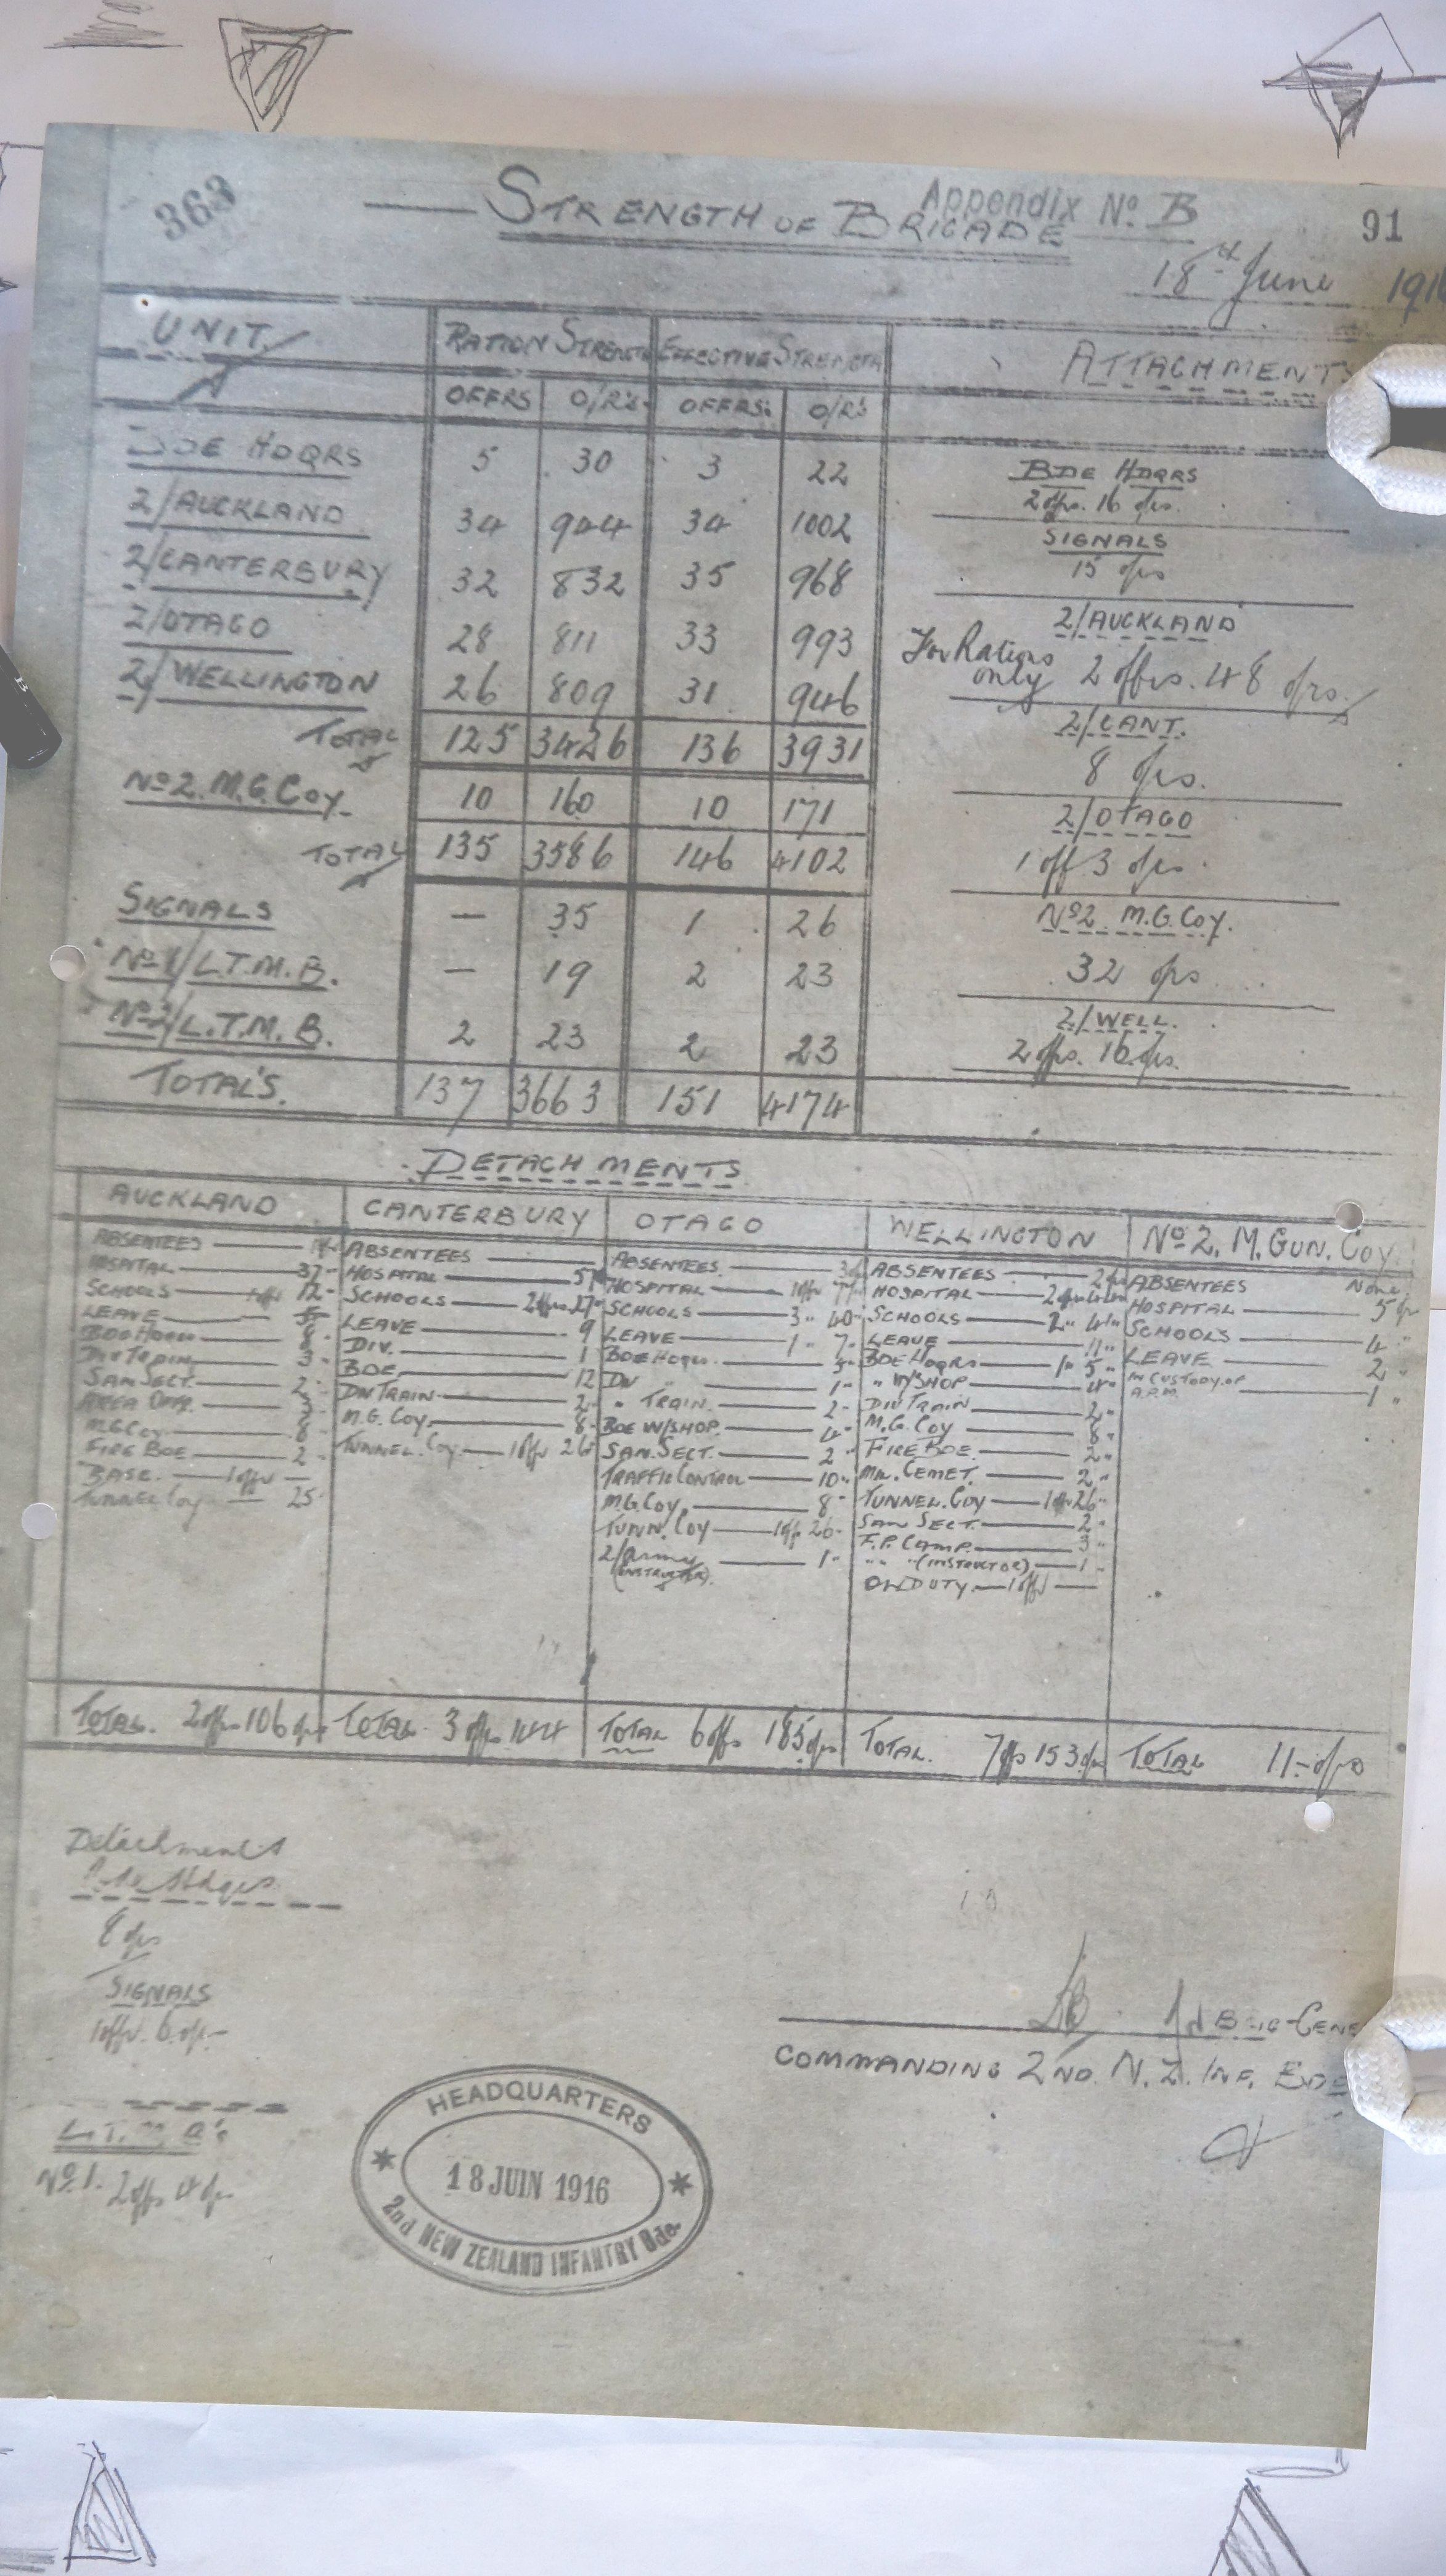 363
Appendix No B
STRENGTH OF BRIGADE
91
18th June 191
UNIT RATION STRENGTH EFFECTIVE STRENGTH ATTACHMENTS
OFFRS O/R's OFFRS: O/R's
BDE HDQRS 5 30 3 22
2/AUCKLAND 34 944 34 1002
2/CANTERBURY 32 832 35 968
2/OTAGO 28 811 33 993
2/WELLINGTON 26 809 31 946
TOTAL 125 3426 136 3931
No 2. M.G. Coy. 10 160 10 171
TOTAL 135 3586 146 4102
SIGNALS — 35 1 26
No 1/L.T.M.B. — 19 2 23
No 2/L.T.M.B. 2 23 2 23
TOTAL'S. 137 3663 151 4174
BDE HDQRS
2 offrs. 16 ors.
SIGNALS
15 ors
2/AUCKLAND
For Rations only 2 offrs. 48 ors.
2/CANT.
8 ors.
2/OTAGO
1 off 3 ors
No 2 M.G. Coy.
32 ors
2/WELL.
2 offrs. 16 ors.
DETACHMENTS
AUCKLAND
ABSENTEES
HOSPITAL — 37
SCHOOLS — 12
LEAVE
BDE HDQRS
DIV TRAIN — 3
SAN SECT. — 2
M.G. Coy — 8
FIRE BDE — 2
BASE. — 1 offr —
TUNNEL Coy — 25
TOTAL. 2 offrs 106 ors
CANTERBURY
ABSENTEES
HOSPITAL
SCHOOLS — 2 offrs 27
LEAVE — 9
DIV. — 1
BDE — 12
DIV TRAIN — 2
M.G. Coy. — 8
TUNNEL. Coy — 1 offr 26
TOTAL 3 offrs 144
OTAGO
ABSENTEES.
HOSPITAL — 1 offr
SCHOOLS — 3 " 40 "
LEAVE — 1 " 7 "
BDE HDQRS.
DIV — 1 "
" TRAIN. — 2 "
BDE W/SHOP. — 4 "
SAN. SECT. — 2 "
TRAFFIC CONTROL — 10 "
M.G. Coy. — 8 "
TUNN. Coy — 1 offr 26 "
2/Army (INSTRUCTOR). — 1 "
TOTAL 6 offs 185 ors
WELLINGTON
ABSENTEES
HOSPITAL
SCHOOLS — 2 " 41 "
LEAVE — 11 "
BDE HDQRS — 1 " 5 "
" W/SHOP — 4 "
DIV TRAIN — 2 "
M.G. Coy — 8 "
FIRE BDE. — 2 "
MIL. CEMET. — 2 "
TUNNEL. COY — 1 offr 26 "
SAN SECT. — 2 "
F.P. CAMP. — 3 "
" " (INSTRUCTOR) — 1 "
ON DUTY. — 1 offr —
TOTAL. 7 offs 153 ors
No 2. M. GUN. Coy.
ABSENTEES None
HOSPITAL — 5 ors
SCHOOLS — 4 "
LEAVE — 2 "
IN CUSTODY OF A.P.M. — 1 "
TOTAL 11 - ors
Detachments
8 ors
SIGNALS
1 offr. 6 ors
L.T.M.B's
No 1. 2 offs 4 ors
BRIG-GENE
COMMANDING 2ND. N.Z. INF. BDE
HEADQUARTERS
18 JUIN 1916
2nd NEW ZEALAND INFANTRY Bde.